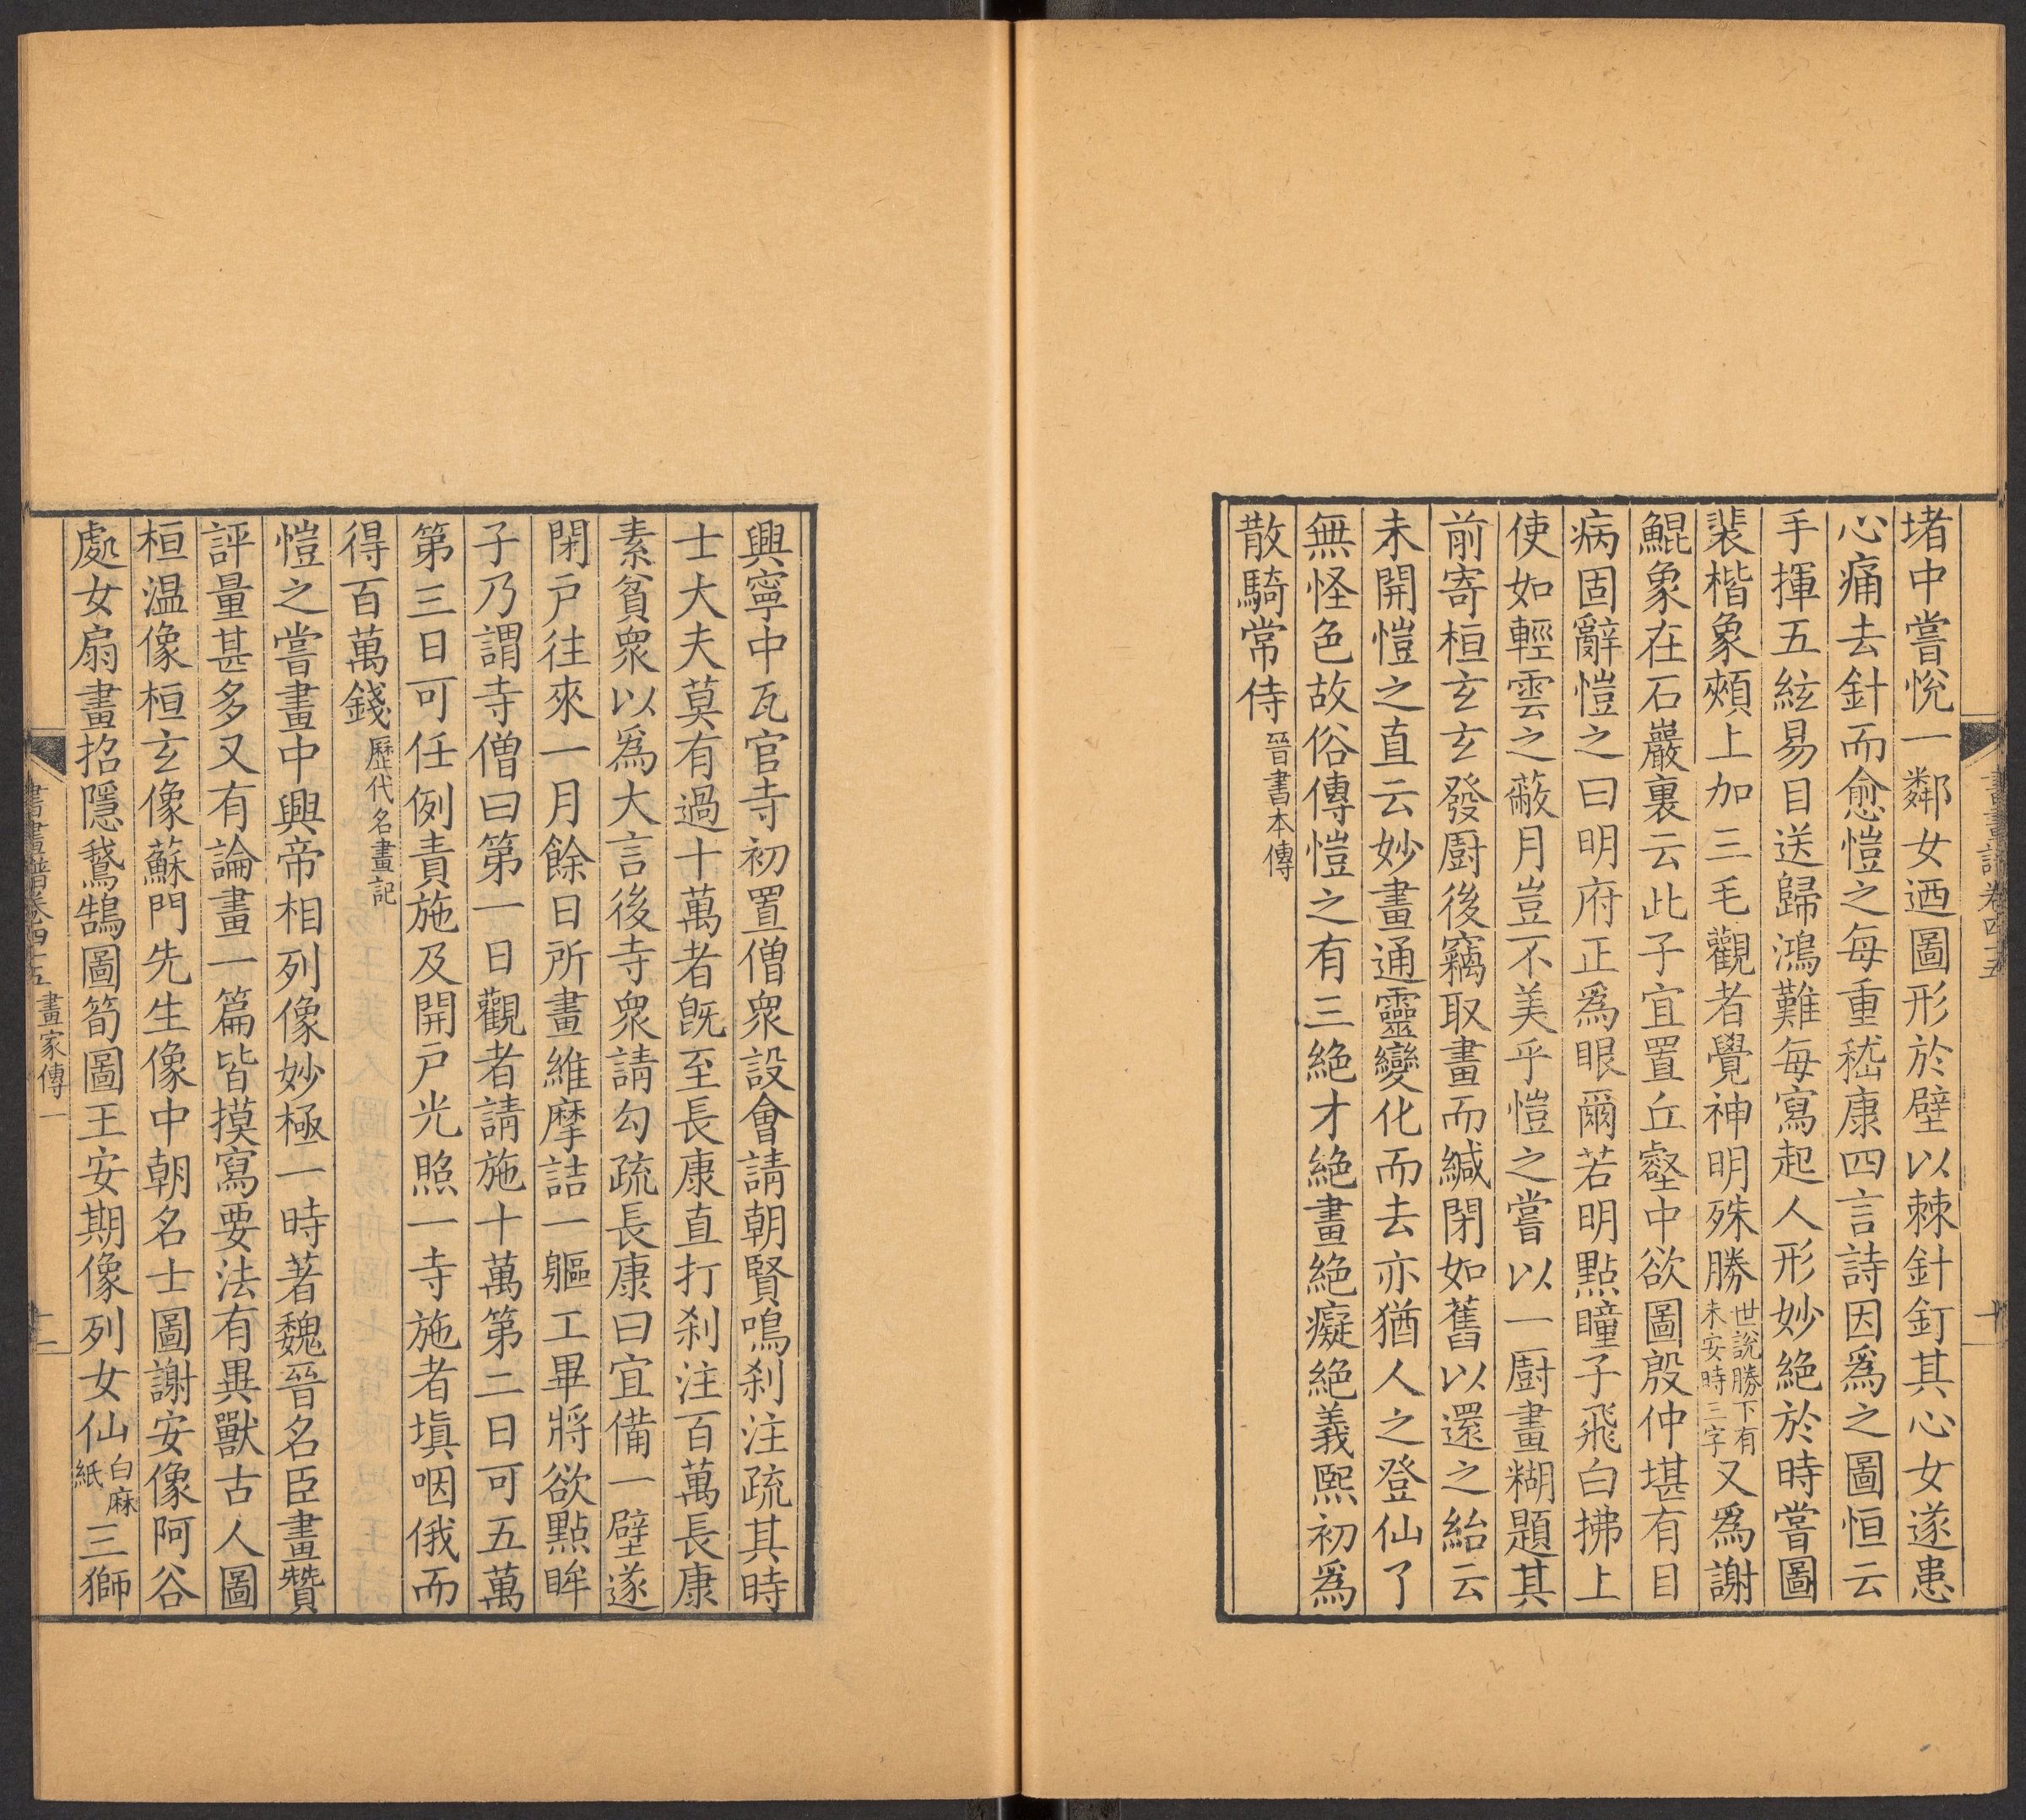 堵中嘗悅一鄰女迺圖形於壁以棘針釘其心女遂患
心痛去針而愈愷之每重嵇康四言詩因爲之圖恒云
手揮五絃易目送歸鴻難每寫起人形妙絶於時嘗圖
裴楷象頰上加三毛觀者覺神明殊勝世說勝下有未安時三字又爲謝
鯤象在石巖裏云此子宜置丘壑中欲圖殷仲堪有目
病固辭愷之曰明府正爲眼爾若明點瞳子飛白拂上
使如輕雲之蔽月豈不美乎愷之嘗以一厨畫糊題其
前寄桓玄玄發厨後竊取畫而緘閉如舊以還之紿云
未開愷之直云妙畫通靈變化而去亦猶人之登仙了
無怪色故俗傳愷之有三絶才絶畫絶癡絶義熙初爲
散騎常侍晉書本傳
興寧中瓦官寺初置僧衆設會請朝賢鳴刹注疏其時
士大夫莫有過十萬者旣至長康直打刹注百萬長康
素貧衆以爲大言後寺衆請勾疏長康曰宜備一壁遂
閉户往來一月餘日所畫維摩詰一軀工畢將欲點眸
子乃謂寺僧曰第一日觀者請施十萬第二日可五萬
第三日可任例責施及開户光照一寺施者塡咽俄而
得百萬錢歷代名畫記
愷之嘗畫中興帝相列像妙極一時著魏晉名臣畫贊
評量甚多又有論畫一篇皆摸寫要法有異獸古人圖
桓温像桓玄像蘇門先生像中朝名士圖謝安像阿谷
處女扇畫招隱鵝鵠圖筍圖王安期像列女仙白麻紙三獅
書畫譜卷四十五 畫家傳一 十一